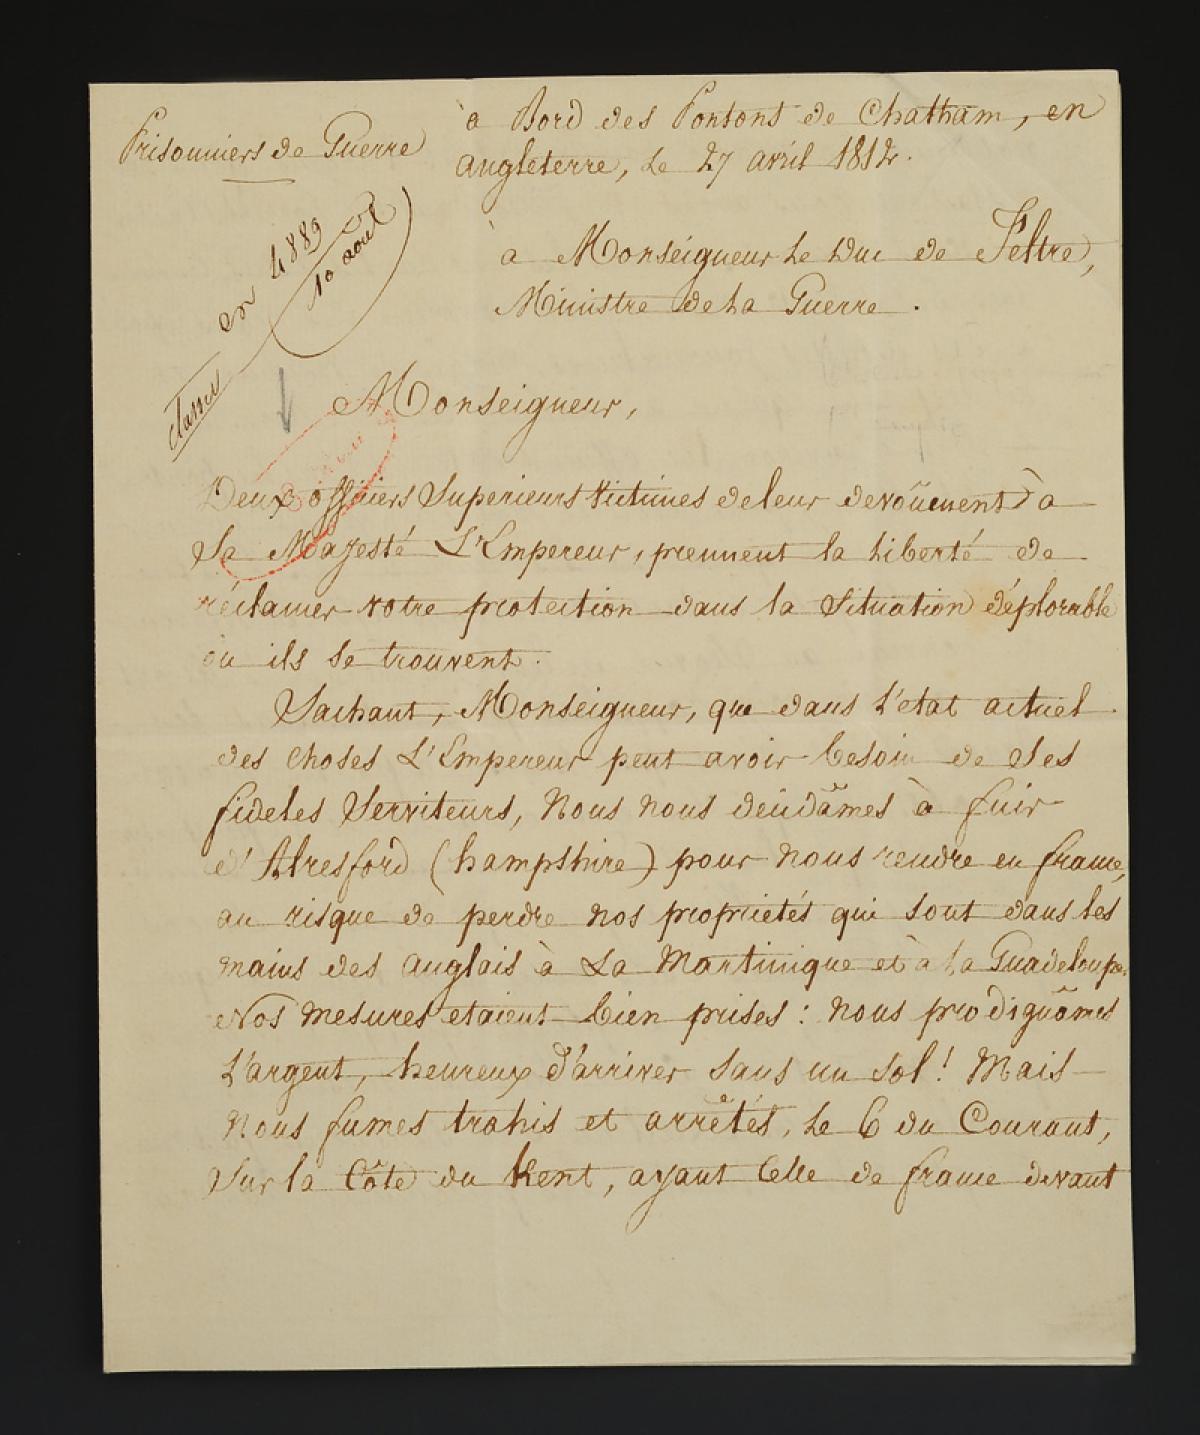 Prisonniers de Guerre
à Bord des Pontons de Chatham, en
Angleterre, le 27 avril 1812.
à Monseigneur le Duc de Feltre,
Ministre de la Guerre.
classer en 4889
10 aout
Monseigneur,
Deux officiers Superieurs victimes de leur devoûement à
Sa Majesté L'Empereur, prennent la liberté de
réclamer votre protection dans la Situation déplorable
où ils se trouvent.
Sachant, Monseigneur, que dans l'etat actuel
des choses L'Empereur peut avoir besoin de Ses
fideles Serviteurs, Nous nous décidâmes à fuir
d'Alresford (hampshire) pour nous rendre en france,
au risque de perdre nos propriétés qui sont dans les
mains des anglais à La Martinique et à la Guadeloupe.
Nos mesures etaient bien prises : nous prodiguâmes
L'argent, heureux d'arriver sans un sol! Mais
nous fumes trahis et arrêtés, le 6 du Courant,
Sur la Côte du Kent, ayant Celle de france devant